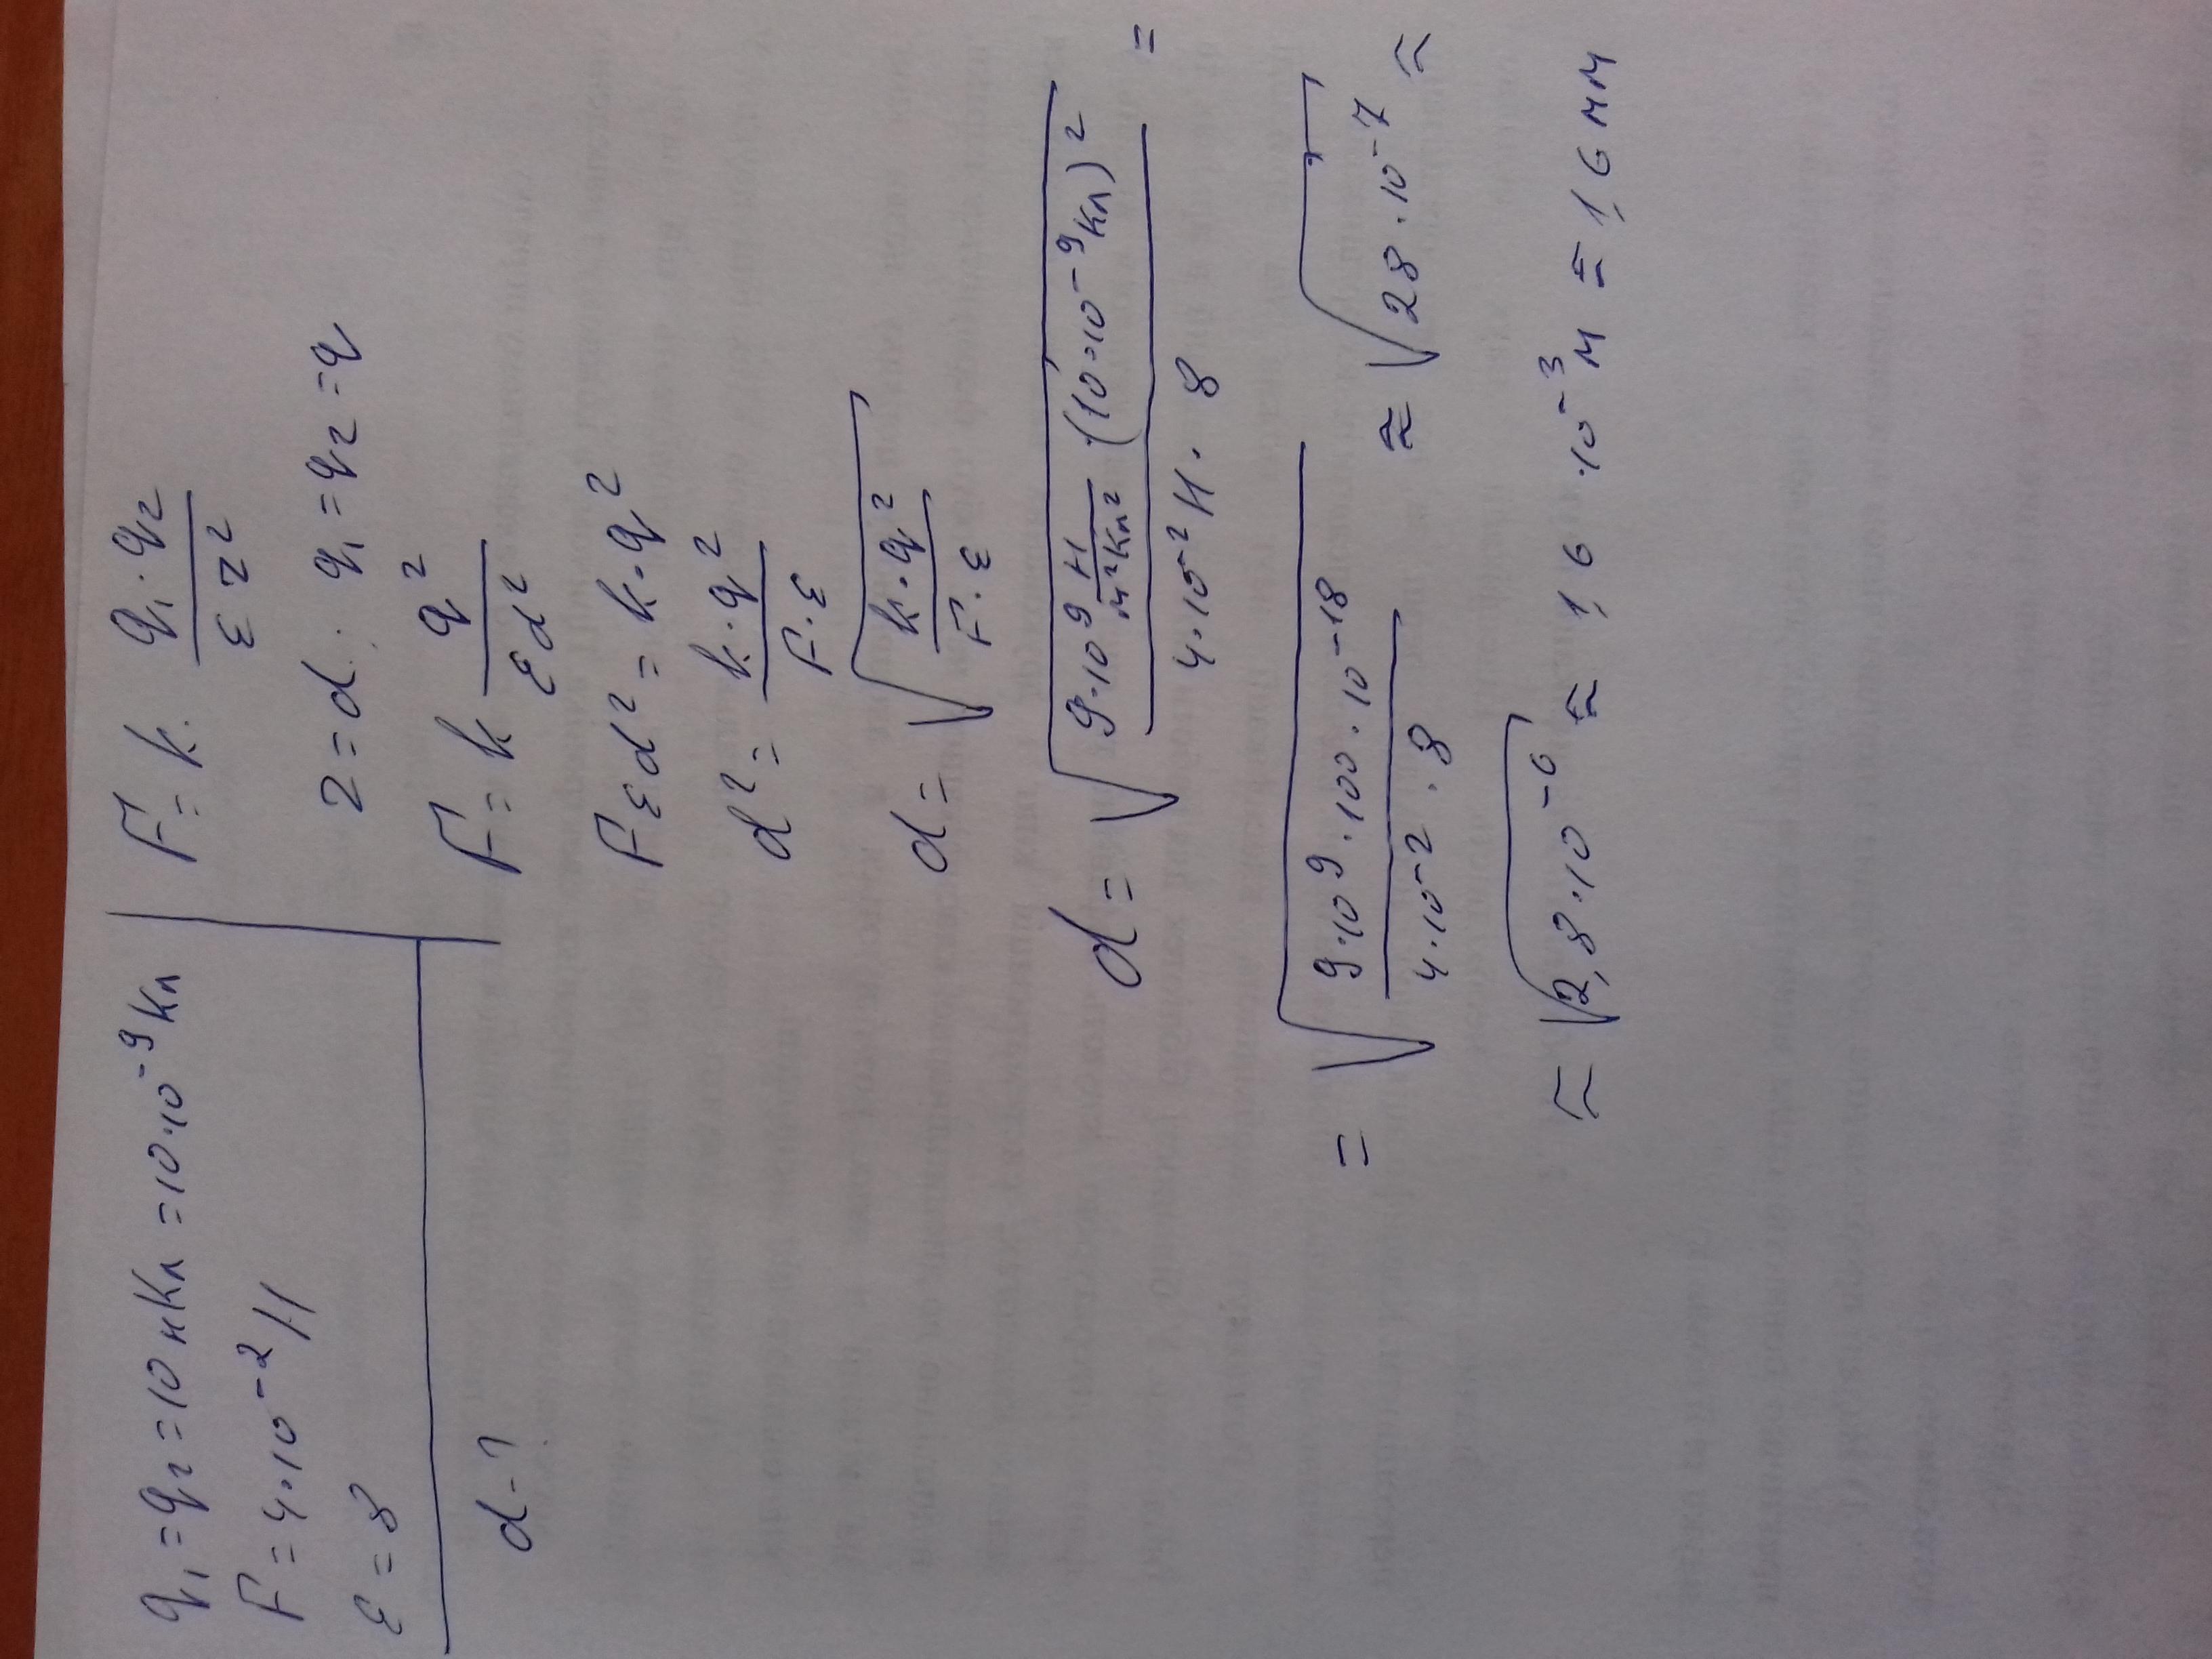 q₁ = q₂ = 10 нКл = 10·10⁻⁹ Кл
F = 4·10⁻² Н
ε = 8
d - ?
F = k · (q₁·q₂)/(ε r²)
r = d ; q₁ = q₂ = q
F = k q²/(ε d²)
F ε d² = k·q²
d² = (k·q²)/(F·ε)
d = √((k·q²)/(F·ε))
d = √((9·10⁹ Н/(м² Кл²) · (10·10⁻⁹ Кл)²)/(4·10⁻² Н · 8)) =
= √((9·10⁹·100·10⁻¹⁸)/(4·10⁻²·8)) ≈ √(28·10⁻⁷) ≈
≈ √(2,8·10⁻⁶) ≈ 1,6·10⁻³ м = 1,6 мм